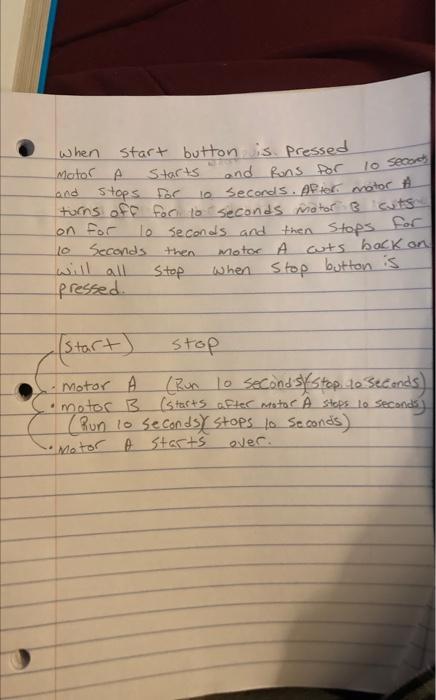 when start button is pressed
Motor A Starts and Runs for 10 seconds
and stops for 10 seconds. After motor A
turns off for 10 seconds motor B cuts
on for 10 seconds and then stops for
10 seconds then motor A cuts back on
will all stop when stop button is
pressed.
(start) stop
• motor A (Run 10 seconds)(stop 10 seconds)
• motor B (starts after motor A stops 10 seconds)
(Run 10 seconds)(stops 10 seconds)
• Motor A starts over.